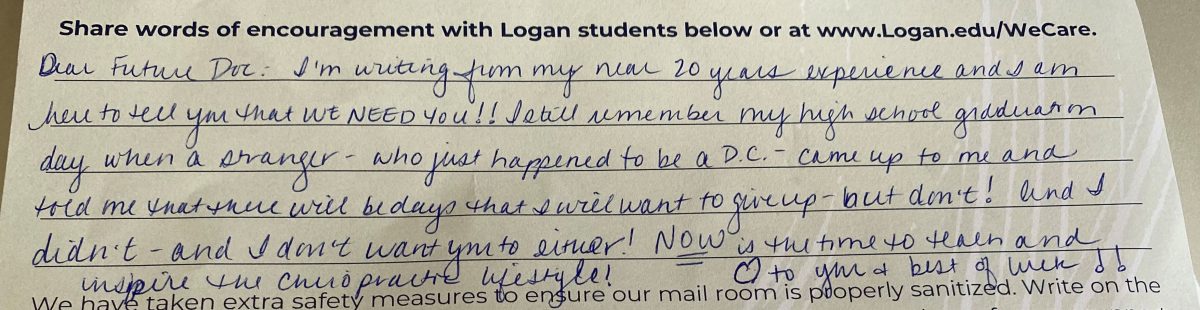 Share words of encouragement with Logan students below or at www.Logan.edu/WeCare.
Dear Future Doc: I'm writing from my near 20 years experience and I am
here to tell you that WE NEED YOU!! I still remember my high school graduation
day when a stranger - who just happened to be a D.C. - came up to me and
told me that there will be days that I will want to give up - but don't! And I
didn't - and I don't want you to either! NOW is the time to teach and
inspire the chiropractic lifestyle! ♡ to you & best of luck!!
We have taken extra safety measures to ensure our mail room is properly sanitized. Write on the